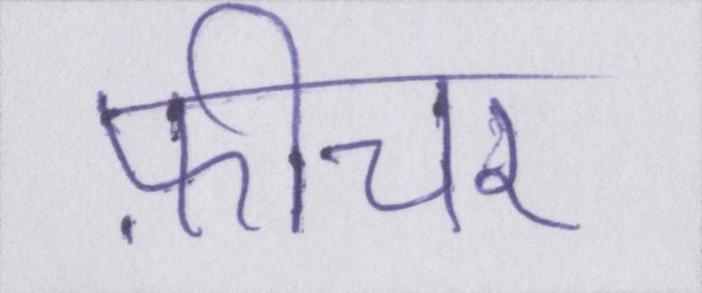 फ़ीचर